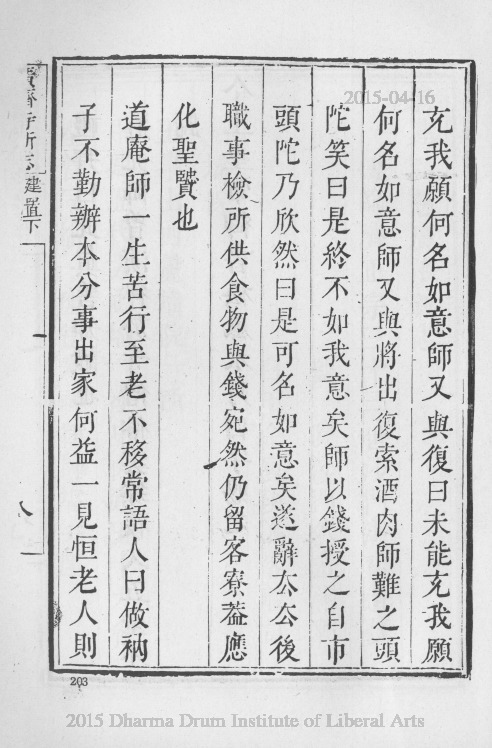 充我願何名如意師又與復曰未能充我願
何名如意師又與將出復索酒肉師難之頭
陀笑曰是終不如我意矣師以錢授之自市
頭陀乃欣然曰是可名如意矣遂辭去去後
職事檢所供食物與錢宛然仍留客寮葢應
化聖賢也
道庵師一生苦行至老不移常語人曰做衲
子不勤辦本分事出家何益一見恒老人則
寺所志 建置下
八
203
2015-04-16
2015 Dharma Drum Institute of Liberal Arts